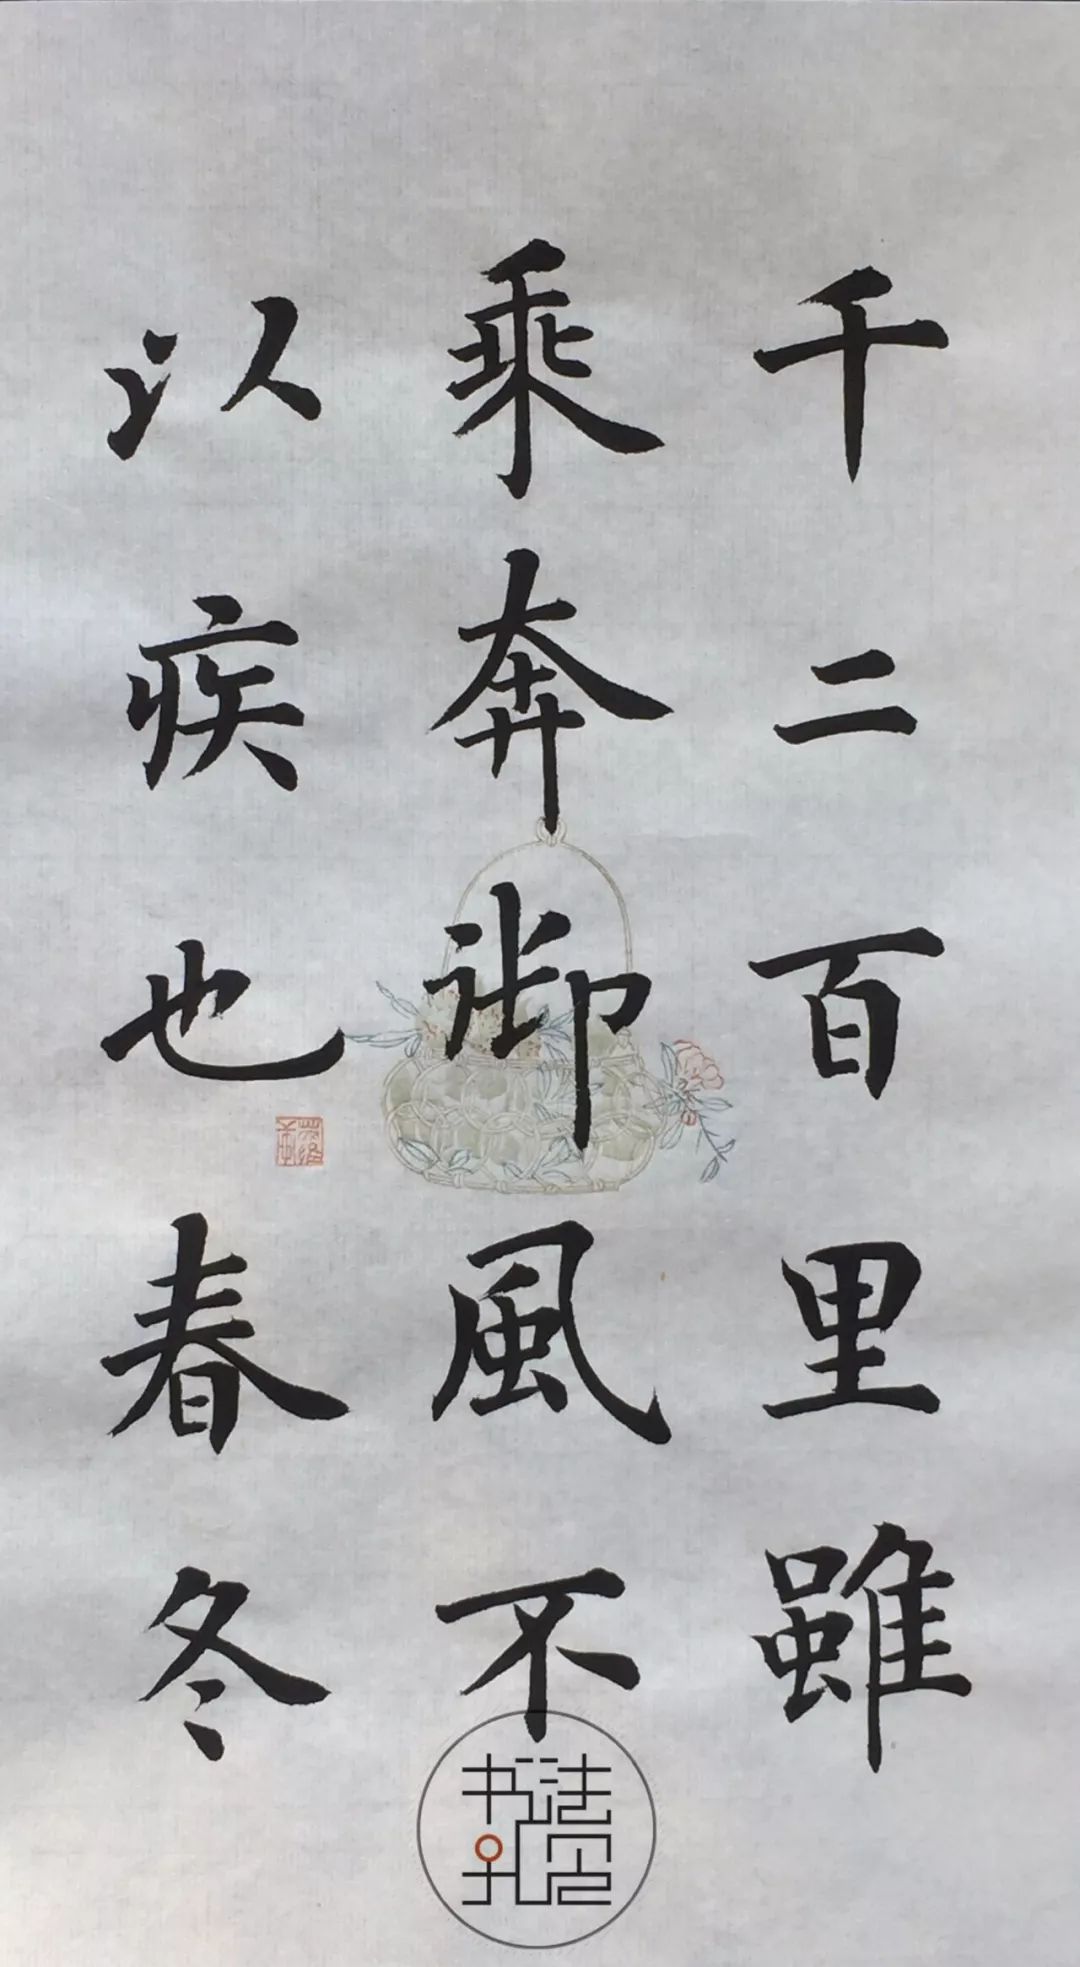 千二百里雖
乘奔御風不
以疾也春冬
书法
孔空